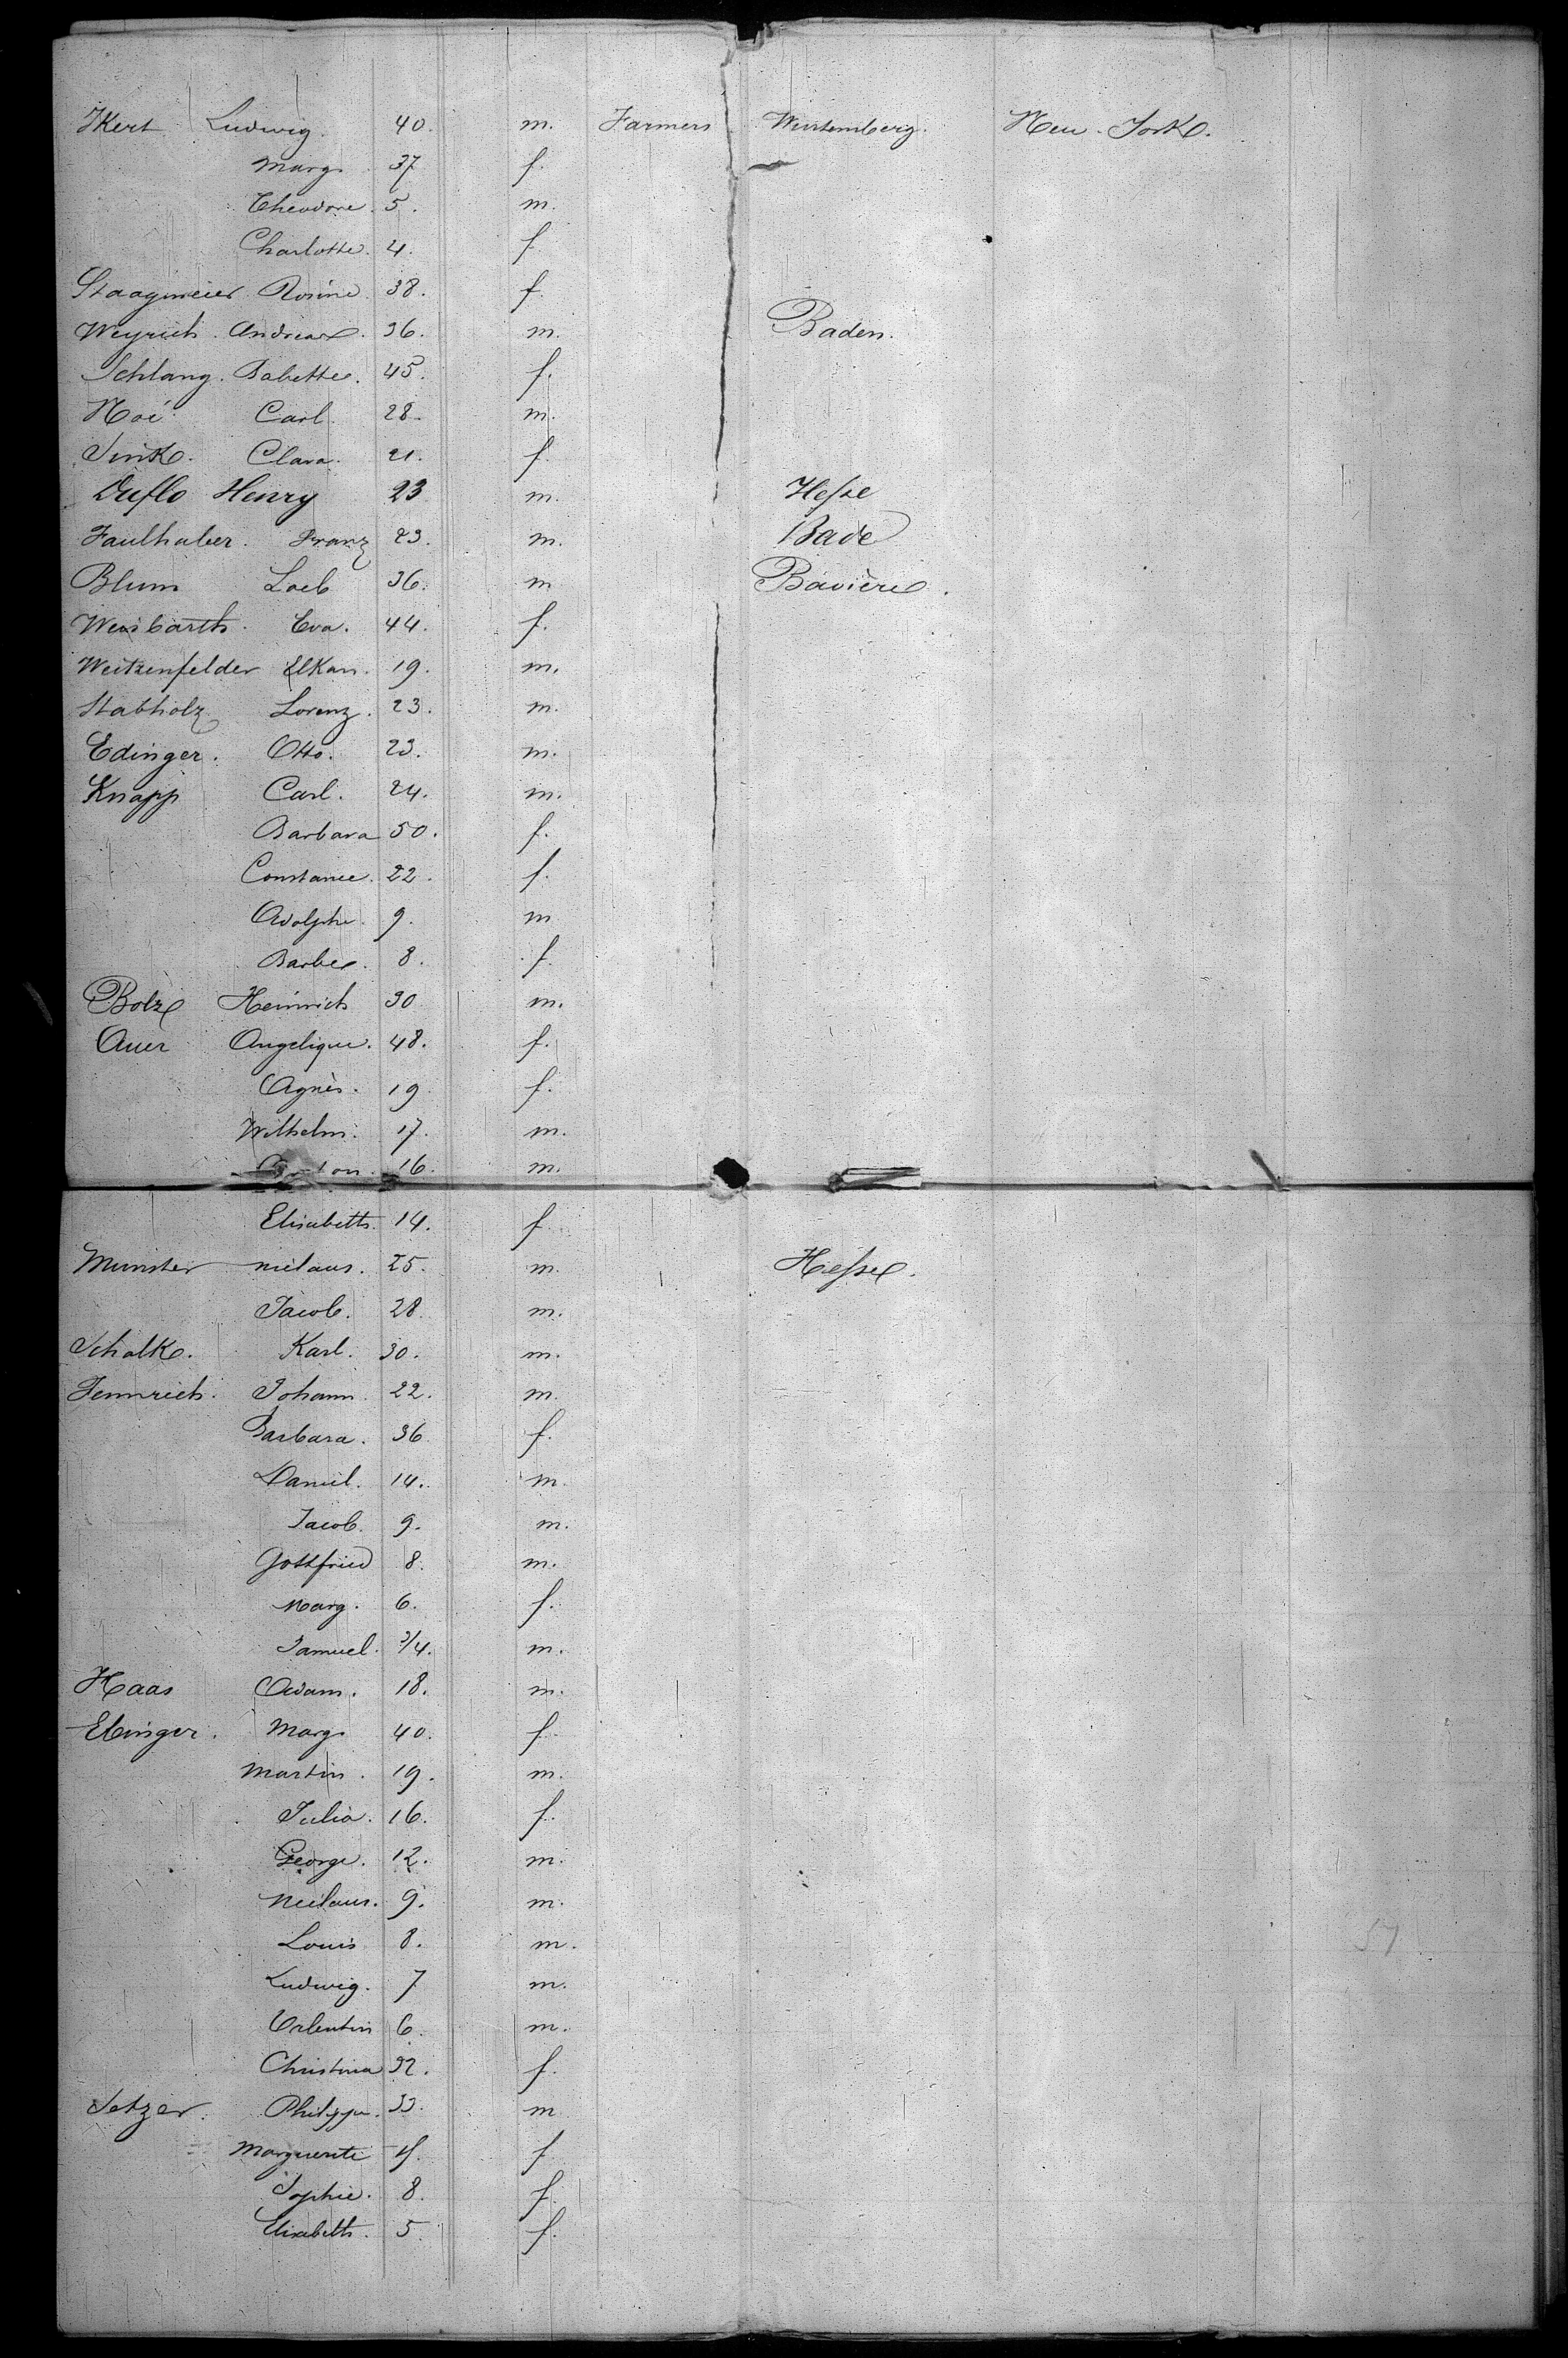 IKert Ludwig. 40. m. Farmers Wurtemberg. New-York.
Marg. 37 f.
Theodore. 5. m.
Charlotte. 4. f.
Staagmeier Rosine. 38. f.
Weyrich. Andreas. 36. m. Baden.
Schlang. Babette. 45. f.
Noé Carl. 28. m.
Sink. Clara. 21. f.
Duflo Henry 23 m. Hesse
Faulhaber. Franz 23. m. Bade
Blum Loeb 36. m Bavière.
Weisbarth. Eva. 44. f.
Weitzenfelder Elkan. 19. m.
Stabholz Lorenz. 23. m.
Edinger. Otto. 23. m.
Knapp Carl. 24. m.
Barbara 50. f.
Constance. 22. f.
Adolphe. 9. m
Barbe. 8. f.
Bolz Heinrich 30 m.
Auer Angelique. 48. f.
Agnès. 19 f.
Wilhelm. 17. m.
16. m.
Elisabeth. 14. f
Munster niclaus. 25. m. Hesse.
Jacob. 28. m.
Schalk. Karl. 30. m.
Jennrich. Johann. 22. m.
Barbara. 36 f.
Daniel. 14. m.
Jacob. 9. m.
Gottfried 8. m.
Marg. 6. f.
Samuel. 3/4. m.
Haas Adam. 18. m.
Ebinger. Marg. 40. f
Martin. 19. m.
Julia. 16. f.
George. 12. m.
Niclaus. 9. m.
Louis 8. m.
Ludwig. 7 m.
Valentin 6. m.
Christina 32. f.
Setzer. Philippe. 33. m
Marguerite f
Sophie. 8. f.
Elisabeth. 5. f.
57